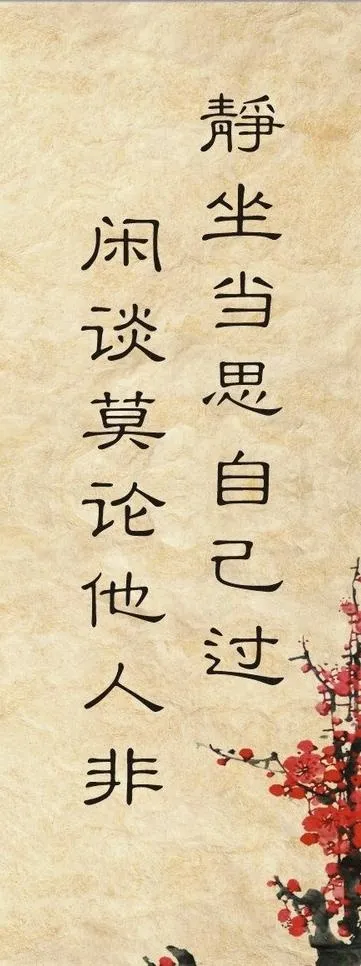 靜坐当思自己过
闲谈莫论他人非